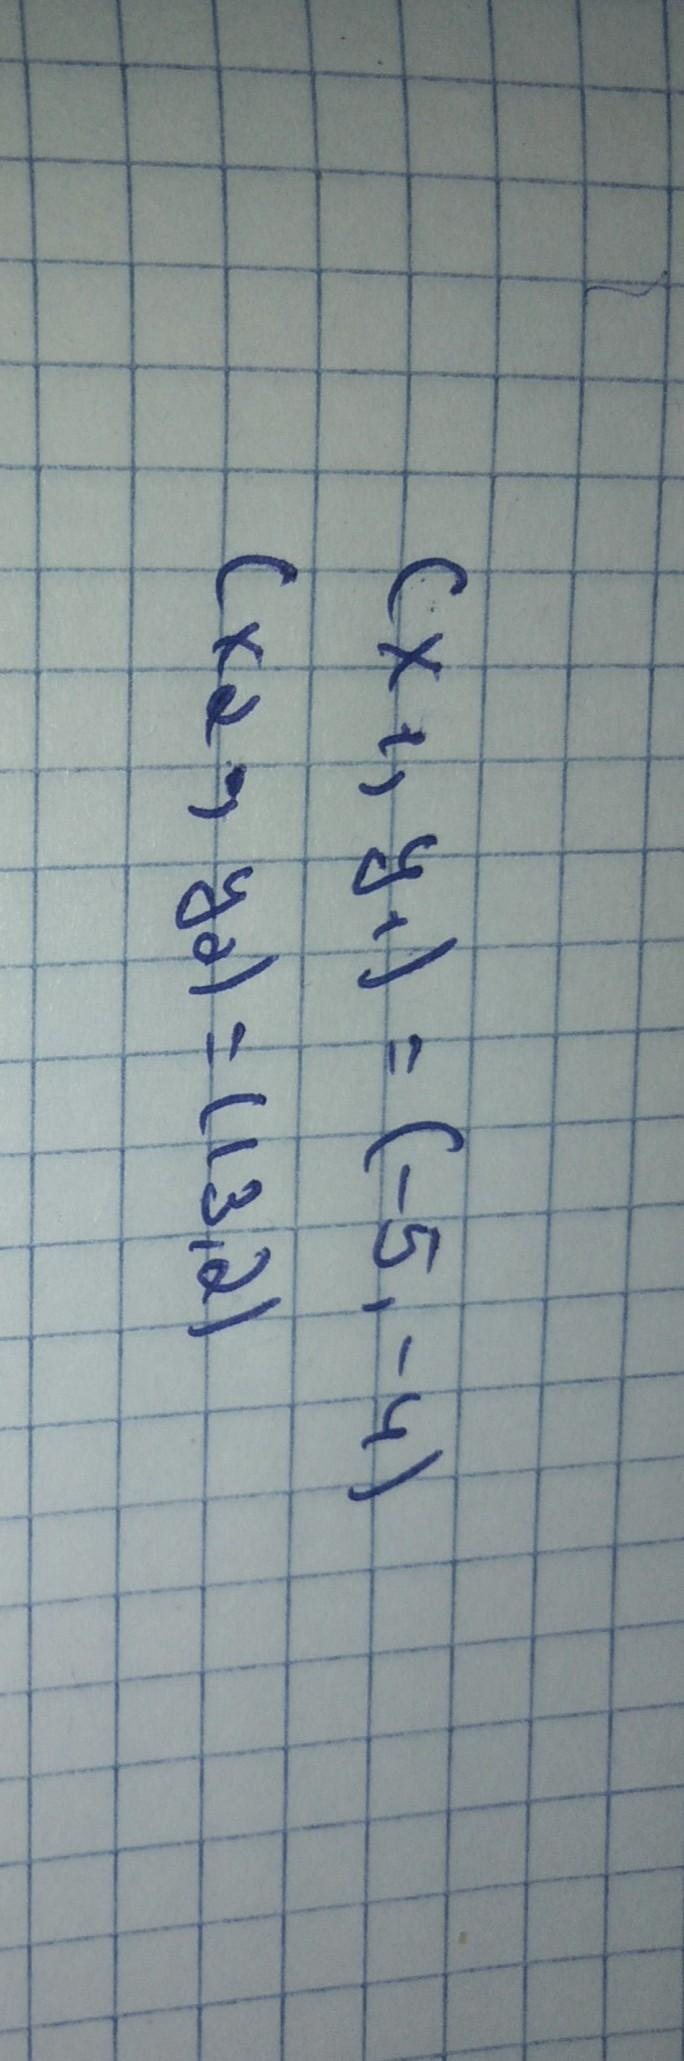 (x1, y1) = (-5, -4)
(x2, y2) = (13, 2)